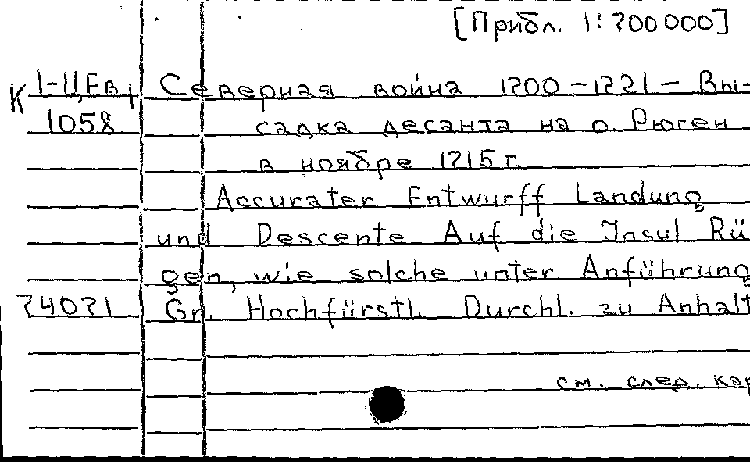 [Прибл. 1:700000]
К 1-ЦЕв. Северная война 1700-1721 - Вы-
1058 садка десанта на о. Рюген
в ноябре 1715 г.
Accurater Entwurff Landung
und Descente Auf die Insul Rü-
gen, wie solche unter Anführung
74071 Gr. Hochfürstl. Durchl. zu Anhalt
см. след. кар